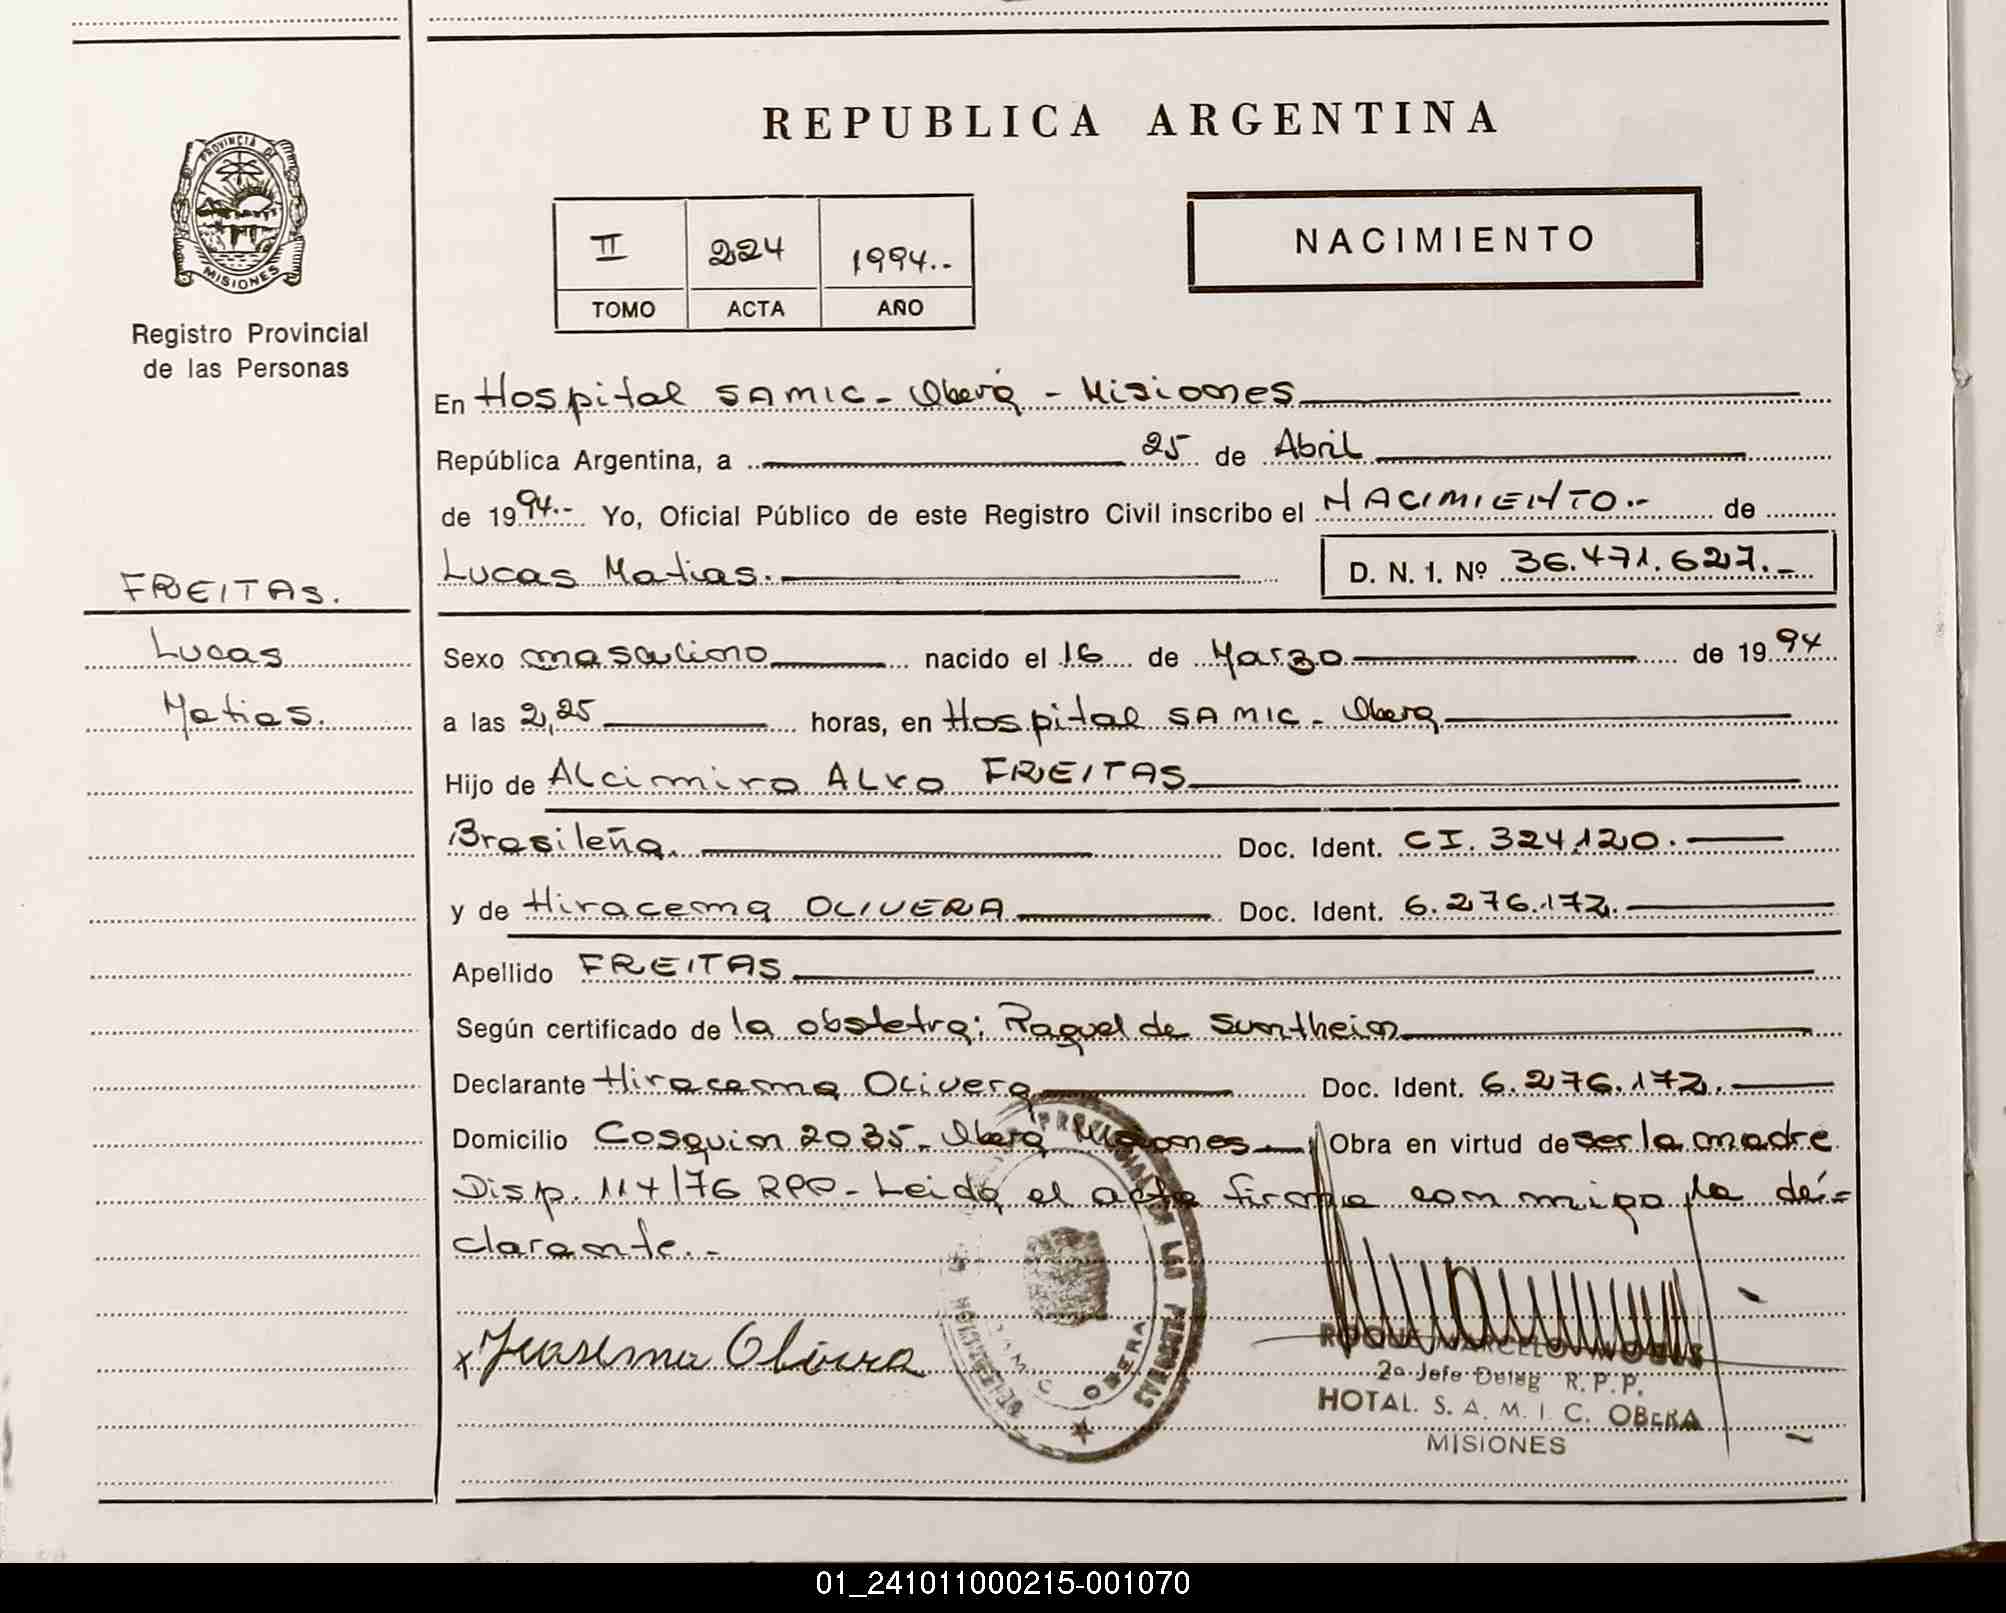 REPUBLICA ARGENTINA
PROVINCIA DE
MISIONES
Registro Provincial
de las Personas
II 224 1994..
TOMO ACTA AÑO
NACIMIENTO
En Hospital SAMIC - Oberá - Misiones
República Argentina, a 25 de Abril
de 1994.- Yo, Oficial Público de este Registro Civil inscribo el NACIMIENTO.- de
Lucas Matias. D. N. I. Nº 36.471.627.-
FREITAS.
Lucas
Matias.
Sexo masculino nacido el 16 de Marzo de 1994
a las 2,25 horas, en Hospital SAMIC - Obera
Hijo de Alcimiro ALVO FREITAS
Brasileña. Doc. Ident. CI. 324120.
y de Hiracema OLIVERA Doc. Ident. 6.276.172.
Apellido FREITAS
Según certificado de la obstetra: Raquel de Suntheim
Declarante Hiracema Olivera Doc. Ident. 6.276.172.
Domicilio Cosquin 2035 - Obera Misiones Obra en virtud de ser la madre
Disp. 114/76 RPP - Leida el acta firma conmigo la de=
clarante.-
x Olivera
OBERA
2º Jefe Deleg R. P. P.
HOTAL. S. A. M. I. C. OBERA
MISIONES
01_241011000215-001070